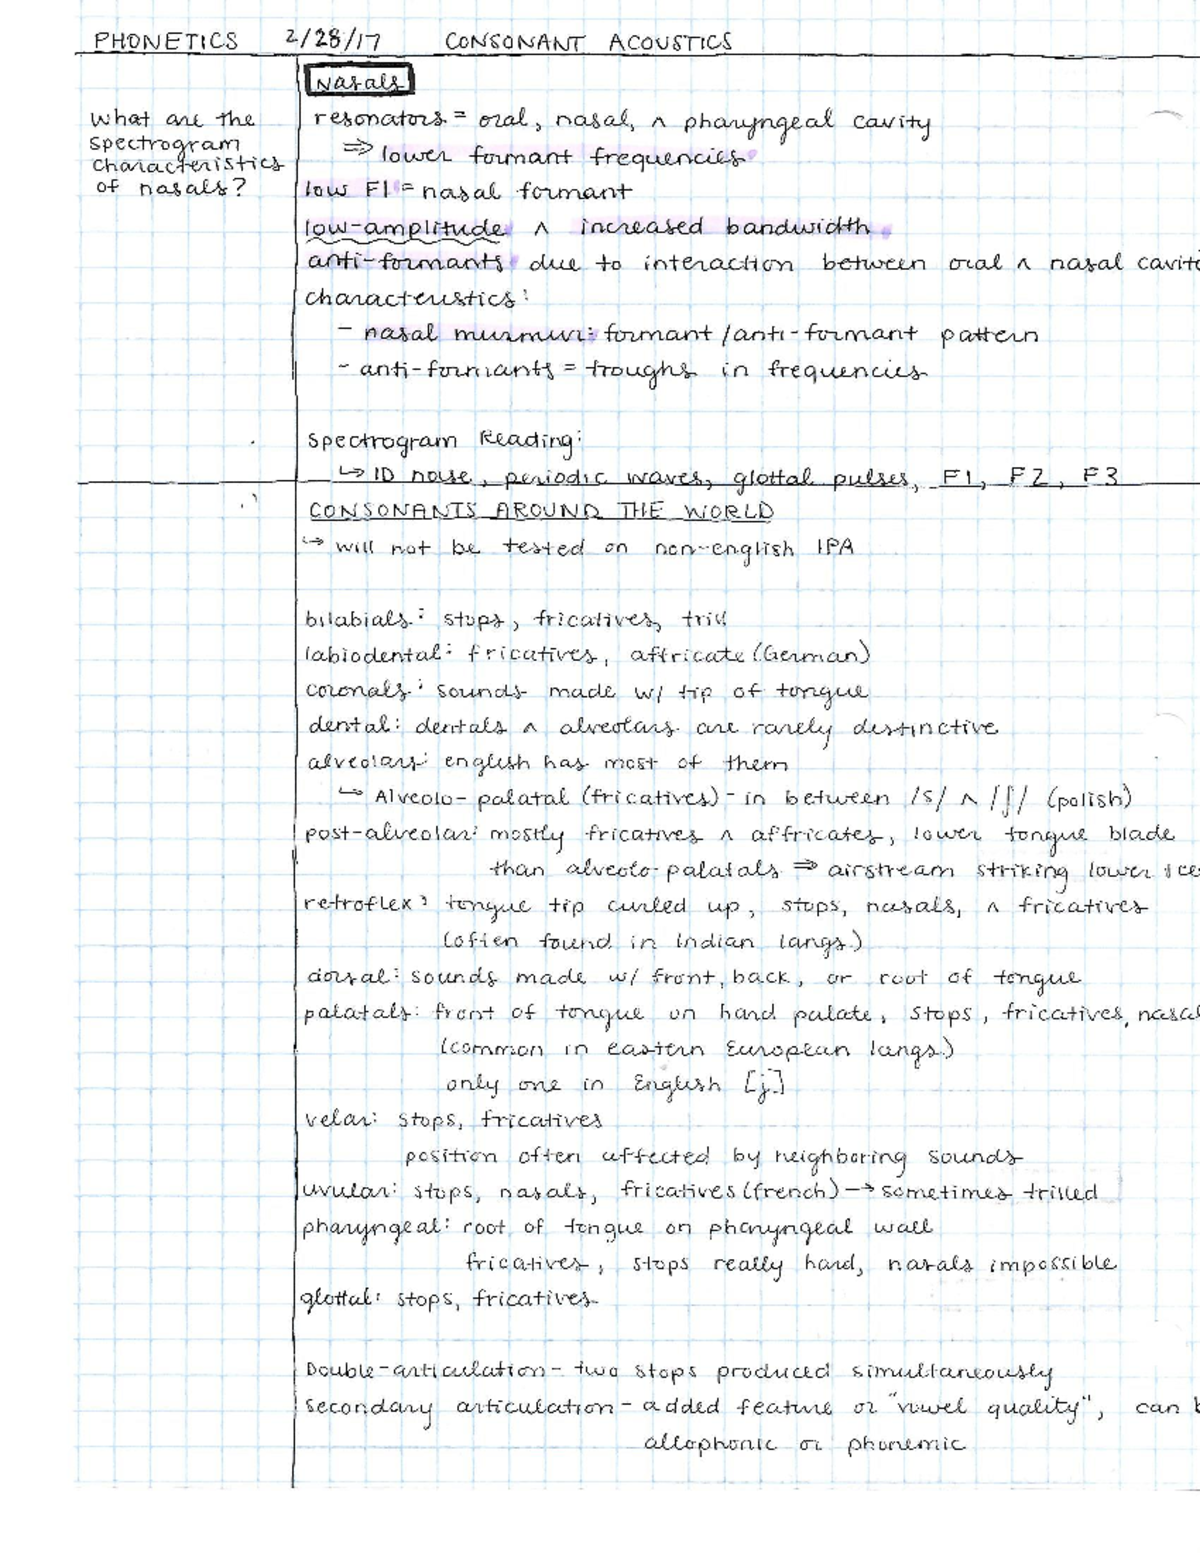 PHONETICS 2/28/17 CONSONANT ACOUSTICS
Nasals
What are the
spectrogram
characteristics
of nasals?
resonators = oral, nasal, ∧ pharyngeal cavity
⇒ lower formant frequencies
low F1 = nasal formant
low-amplitude ∧ increased bandwidth
anti-formants due to interaction between oral ∧ nasal
characteristics:
- nasal murmur: formant/anti-formant pattern
- anti-formants = troughs in frequencies
Spectrogram Reading:
↳ ID noise, periodic waves, glottal pulses, F1, F2, F3
CONSONANTS AROUND THE WORLD
↳ will not be tested on non-english IPA
bilabials: stops, fricatives, trill
labiodental: fricatives, affricate (German)
coronals: sounds made w/ tip of tongue
dental: dentals ∧ alveolars are rarely distinctive
alveolars: english has most of them
↳ Alveolo-palatal (fricatives) - in between /s/ ∧ /ʃ/ (polish)
post-alveolar: mostly fricatives ∧ affricates, lower tongue blade
than alveolo-palatals ⇒ airstream striking lower
retroflex: tongue tip curled up, stops, nasals, ∧ fricatives
(often found in Indian langs.)
dorsal: sounds made w/ front, back, or root of tongue
palatals: front of tongue on hard palate, stops, fricatives, nasal
(common in eastern European langs.)
only one in English [j]
velar: stops, fricatives
position often affected by neighboring sounds
uvular: stops, nasals, fricatives (french) → sometimes trilled
pharyngeal: root of tongue on pharyngeal wall
fricatives, stops really hard, nasals impossible
glottal: stops, fricatives
Double-articulation - two stops produced simultaneously
Secondary articulation - added feature or "vowel quality", can
allophonic or phonemic